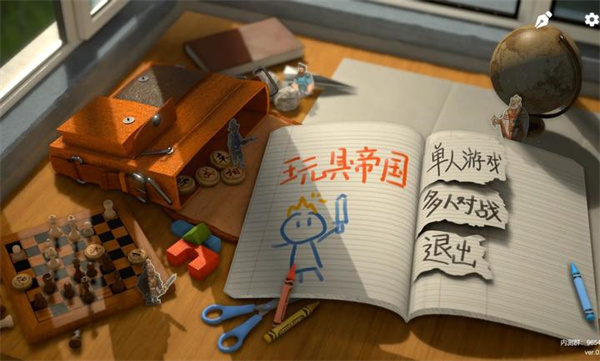 玩具帝国
单人游戏
多人对战
退出
内测群：9654
ver.0